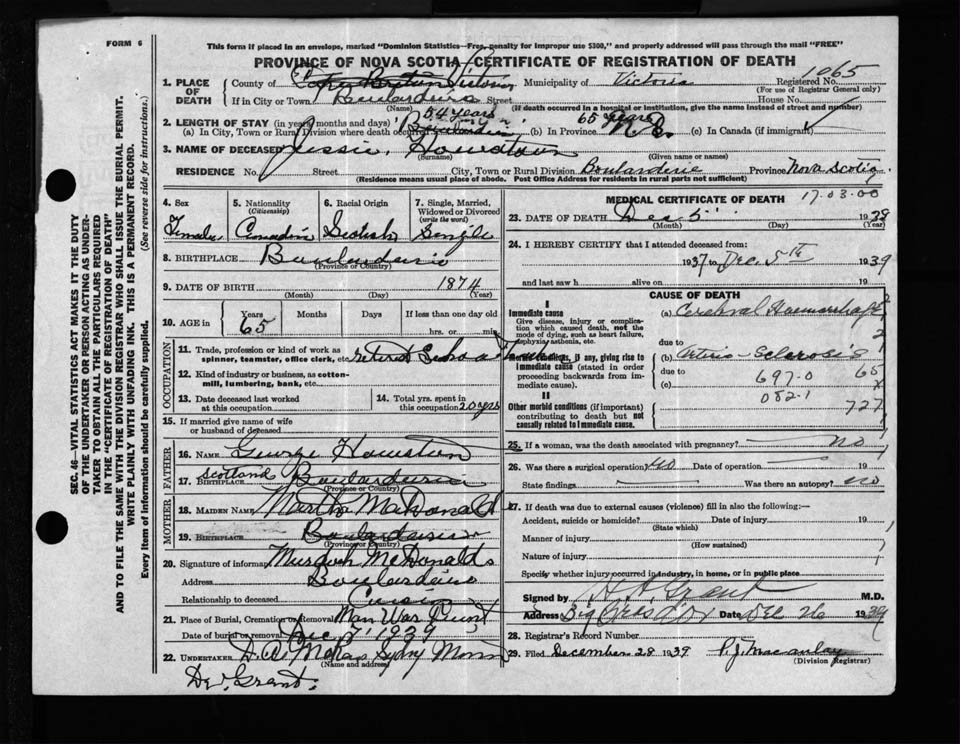 FORM 6
This form if placed in an envelope, marked "Dominion Statistics—Free, penalty for improper use $300," and properly addressed will pass through the mail "FREE"
PROVINCE OF NOVA SCOTIA CERTIFICATE OF REGISTRATION OF DEATH
1065
1. PLACE OF DEATH
County of Cape Breton Victoria Municipality of Victoria Registered No.
(For use of Registrar General only)
If in City or Town Boularderie Street House No.
(Name) (If death occurred in a hospital or institution, give the name instead of street and number)
54 years 65 years
2. LENGTH OF STAY (in years, months and days)
(a) In City, Town or Rural Division where death occurred Boularderie (b) In Province N.S. (c) In Canada (if immigrant)
3. NAME OF DECEASED Jessie Houstoun
(Surname) (Given name or names)
RESIDENCE No. Street City, Town or Rural Division Boularderie Province Nova Scotia
(Residence means usual place of abode. Post Office Address for residents in rural parts not sufficient)
4. Sex
Female
5. Nationality
(Citizenship)
Canadian
6. Racial Origin
Scotish
7. Single, Married, Widowed or Divorced
(write the word)
Single
8. BIRTHPLACE Boularderie
(Province or Country)
9. DATE OF BIRTH 1874
(Month) (Day) (Year)
10. AGE in
Years Months Days If less than one day
65 hrs. or min.
OCCUPATION
11. Trade, profession or kind of work as spinner, teamster, office clerk, etc. retired School Teacher
12. Kind of industry or business, as cotton-mill, lumbering, bank, etc.
13. Date deceased last worked at this occupation
14. Total yrs. spent in this occupation 20 yrs
15. If married give name of wife or husband of deceased
FATHER
16. NAME George Houstoun
17. BIRTHPLACE Scotland Boularderie
(Province or Country)
MOTHER
18. MAIDEN NAME Martha McDonald
19. BIRTHPLACE Boularderie
(Province or Country)
20. Signature of informant Murdoch McDonald
Address Boularderie
Relationship to deceased Cusin
21. Place of Burial, Cremation or Removal Man War Point
Date of burial or removal Dec 7 1939
22. UNDERTAKER D. W. McKay Sydney Mines
(Name and address)
Dev. Grant.
MEDICAL CERTIFICATE OF DEATH 17.03.00
23. DATE OF DEATH Dec 5 1939
(Month) (Day) (Year)
24. I HEREBY CERTIFY that I attended deceased from:
1937 to Dec. 5th 1939
and last saw h alive on 19
CAUSE OF DEATH
I
Immediate cause
Give disease, injury or complication which caused death, not the mode of dying, such as heart failure, asphyxia, asthenia, etc.
(a) Cerebral Haemorrhage 2
due to 2
Morbid conditions, if any, giving rise to immediate cause (stated in order proceeding backwards from immediate cause).
(b) Arterio-Sclerosis
due to 697.0 65
(c) 082.1 X
II
Other morbid conditions (if important) contributing to death but not causally related to immediate cause.
727
25. If a woman, was the death associated with pregnancy? no
26. Was there a surgical operation? no Date of operation 19
State findings Was there an autopsy? no
27. If death was due to external causes (violence) fill in also the following:—
Accident, suicide or homicide? Date of injury 19
(State which)
Manner of injury
(How sustained)
Nature of injury
Specify whether injury occurred in industry, in home, or in public place
Signed by H A Grant M.D.
Address Big Bras d'Or Date Dec 26 1939
28. Registrar's Record Number
29. Filed December 28 1939 P.J. Macaulay
(Division Registrar)
SEC. 46—VITAL STATISTICS ACT MAKES IT THE DUTY
OF THE UNDERTAKER OR PERSON ACTING AS UNDER-
TAKER TO OBTAIN ALL THE PARTICULARS REQUIRED
IN THE "CERTIFICATE OF REGISTRATION OF DEATH"
AND TO FILE THE SAME WITH THE DIVISION REGISTRAR WHO SHALL ISSUE THE BURIAL PERMIT.
WRITE PLAINLY WITH UNFADING INK. THIS IS A PERMANENT RECORD.
Every item of information should be carefully supplied. (See reverse side for instructions.)